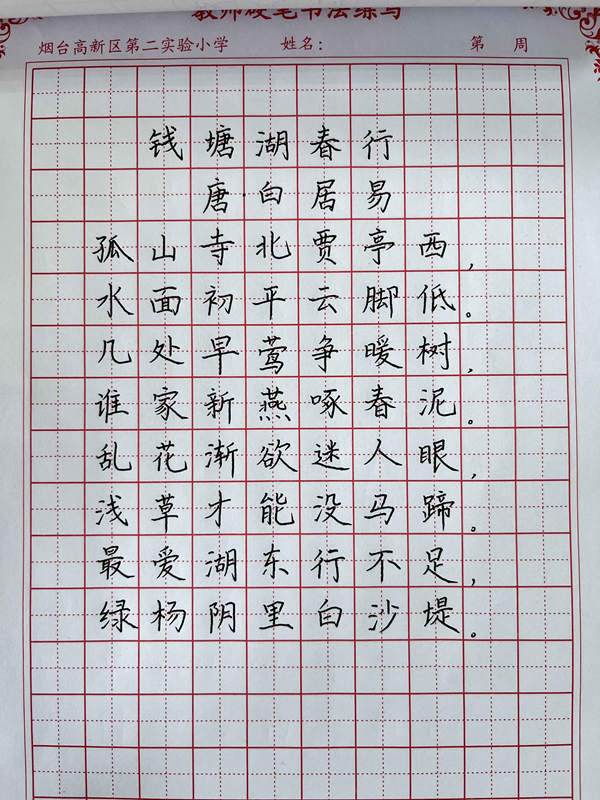 教师硬笔书法练写
烟台高新区第二实验小学 姓名： 第 周
钱塘湖春行
唐·白居易
孤山寺北贾亭西，
水面初平云脚低。
几处早莺争暖树，
谁家新燕啄春泥。
乱花渐欲迷人眼，
浅草才能没马蹄。
最爱湖东行不足，
绿杨阴里白沙堤。